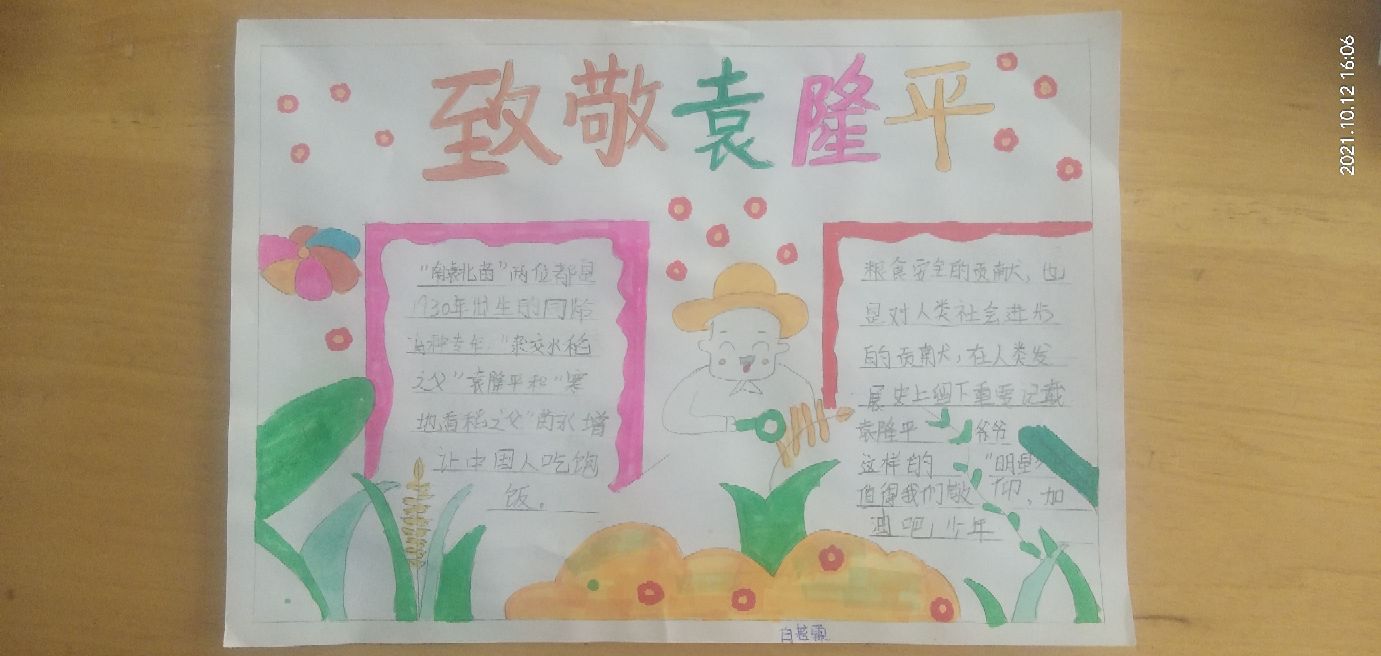 致敬袁隆平
"南袁北茵"两位都是
1930年出生的同龄
"杂交水稻
之父"袁隆平和"寒
地香稻之父"的水增
让中国人吃饱
饭。
粮食安全的贡献,也
是对人类社会进步
的贡献,在人类发
展史上留下重要记载
袁隆平 爷爷
这样的 "明星"
值得我们敬 仰,加
油吧,少年
2021.10.12 16:06